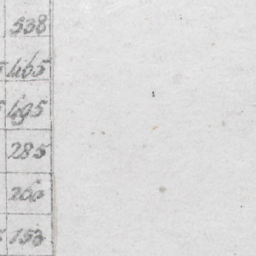 538
465
495
285
260
153